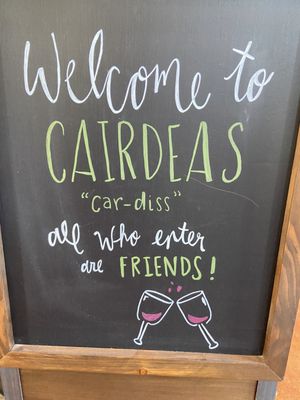 Welcome to
CAIRDEAS
"Car-diss"
all who enter
are FRIENDS!